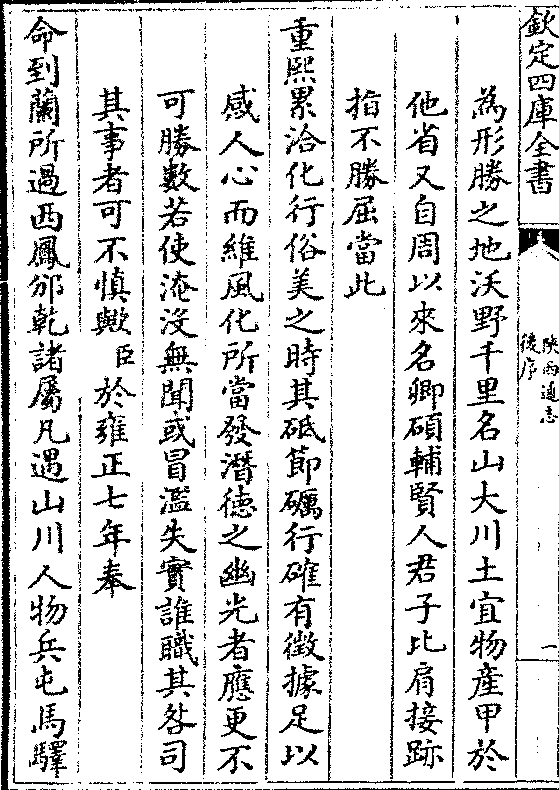 欽定四庫全書
陝西通志
後序
一
為形勝之地沃野千里名山大川土宜物産甲於
他省又自周以來名卿碩輔賢人君子比肩接跡
指不勝屈當此
重熙累洽化行俗美之時其砥節礪行確有徵據足以
感人心而維風化所當發潛德之幽光者應更不
可勝數若使淹沒無聞或冒濫失實誰職其咎司
其事者可不慎歟臣於雍正七年奉
命到蘭所過西鳳邠乾諸屬凡遇山川人物兵屯馬驛